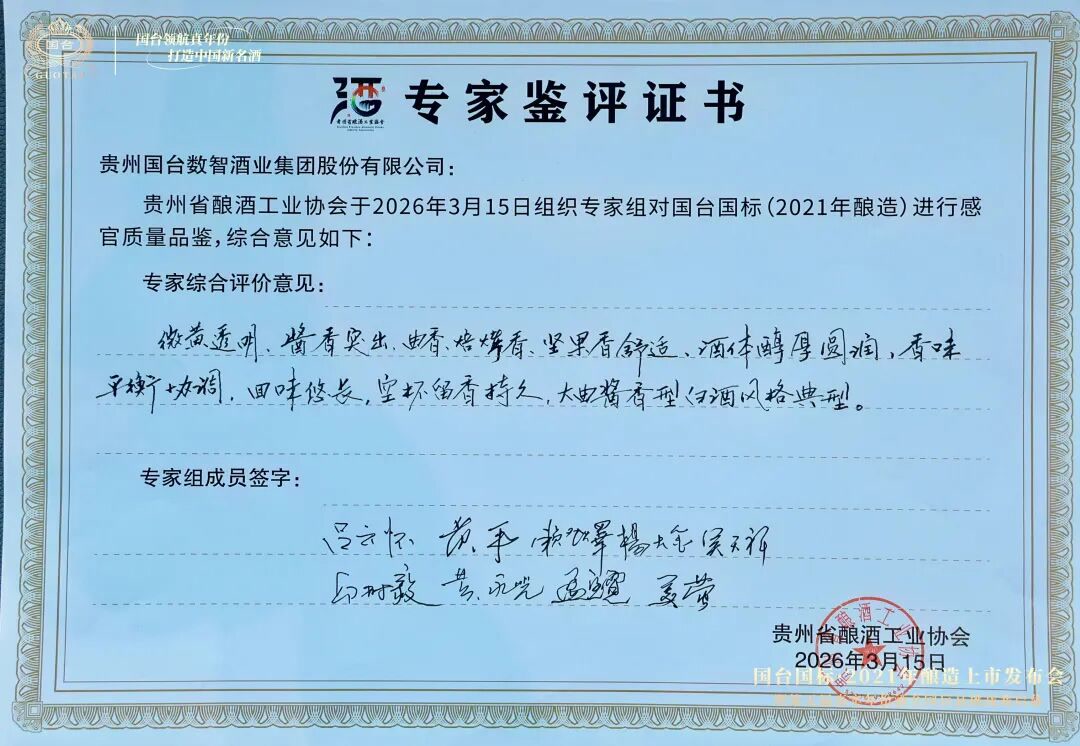 国台
GUOTAI
国台领航真年份
打造中国新名酒
酒
贵州省酿酒工业协会
专家鉴评证书
贵州国台数智酒业集团股份有限公司：
贵州省酿酒工业协会于2026年3月15日组织专家组对国台国标（2021年酿造）进行感
官质量品鉴，综合意见如下：
专家综合评价意见：
微黄透明、酱香突出、曲香、焙烤香、坚果香舒适、酒体醇厚圆润、香味
平衡协调，回味悠长，空杯留香持久，大曲酱香型白酒风格典型。
专家组成员签字：
吕云怀 黄平 杨大金 吴天祥
邱树毅 黄永光 孟望霓
贵州省酿酒工业协会
2026年3月15日
国台国标·2021年酿造上市发布会